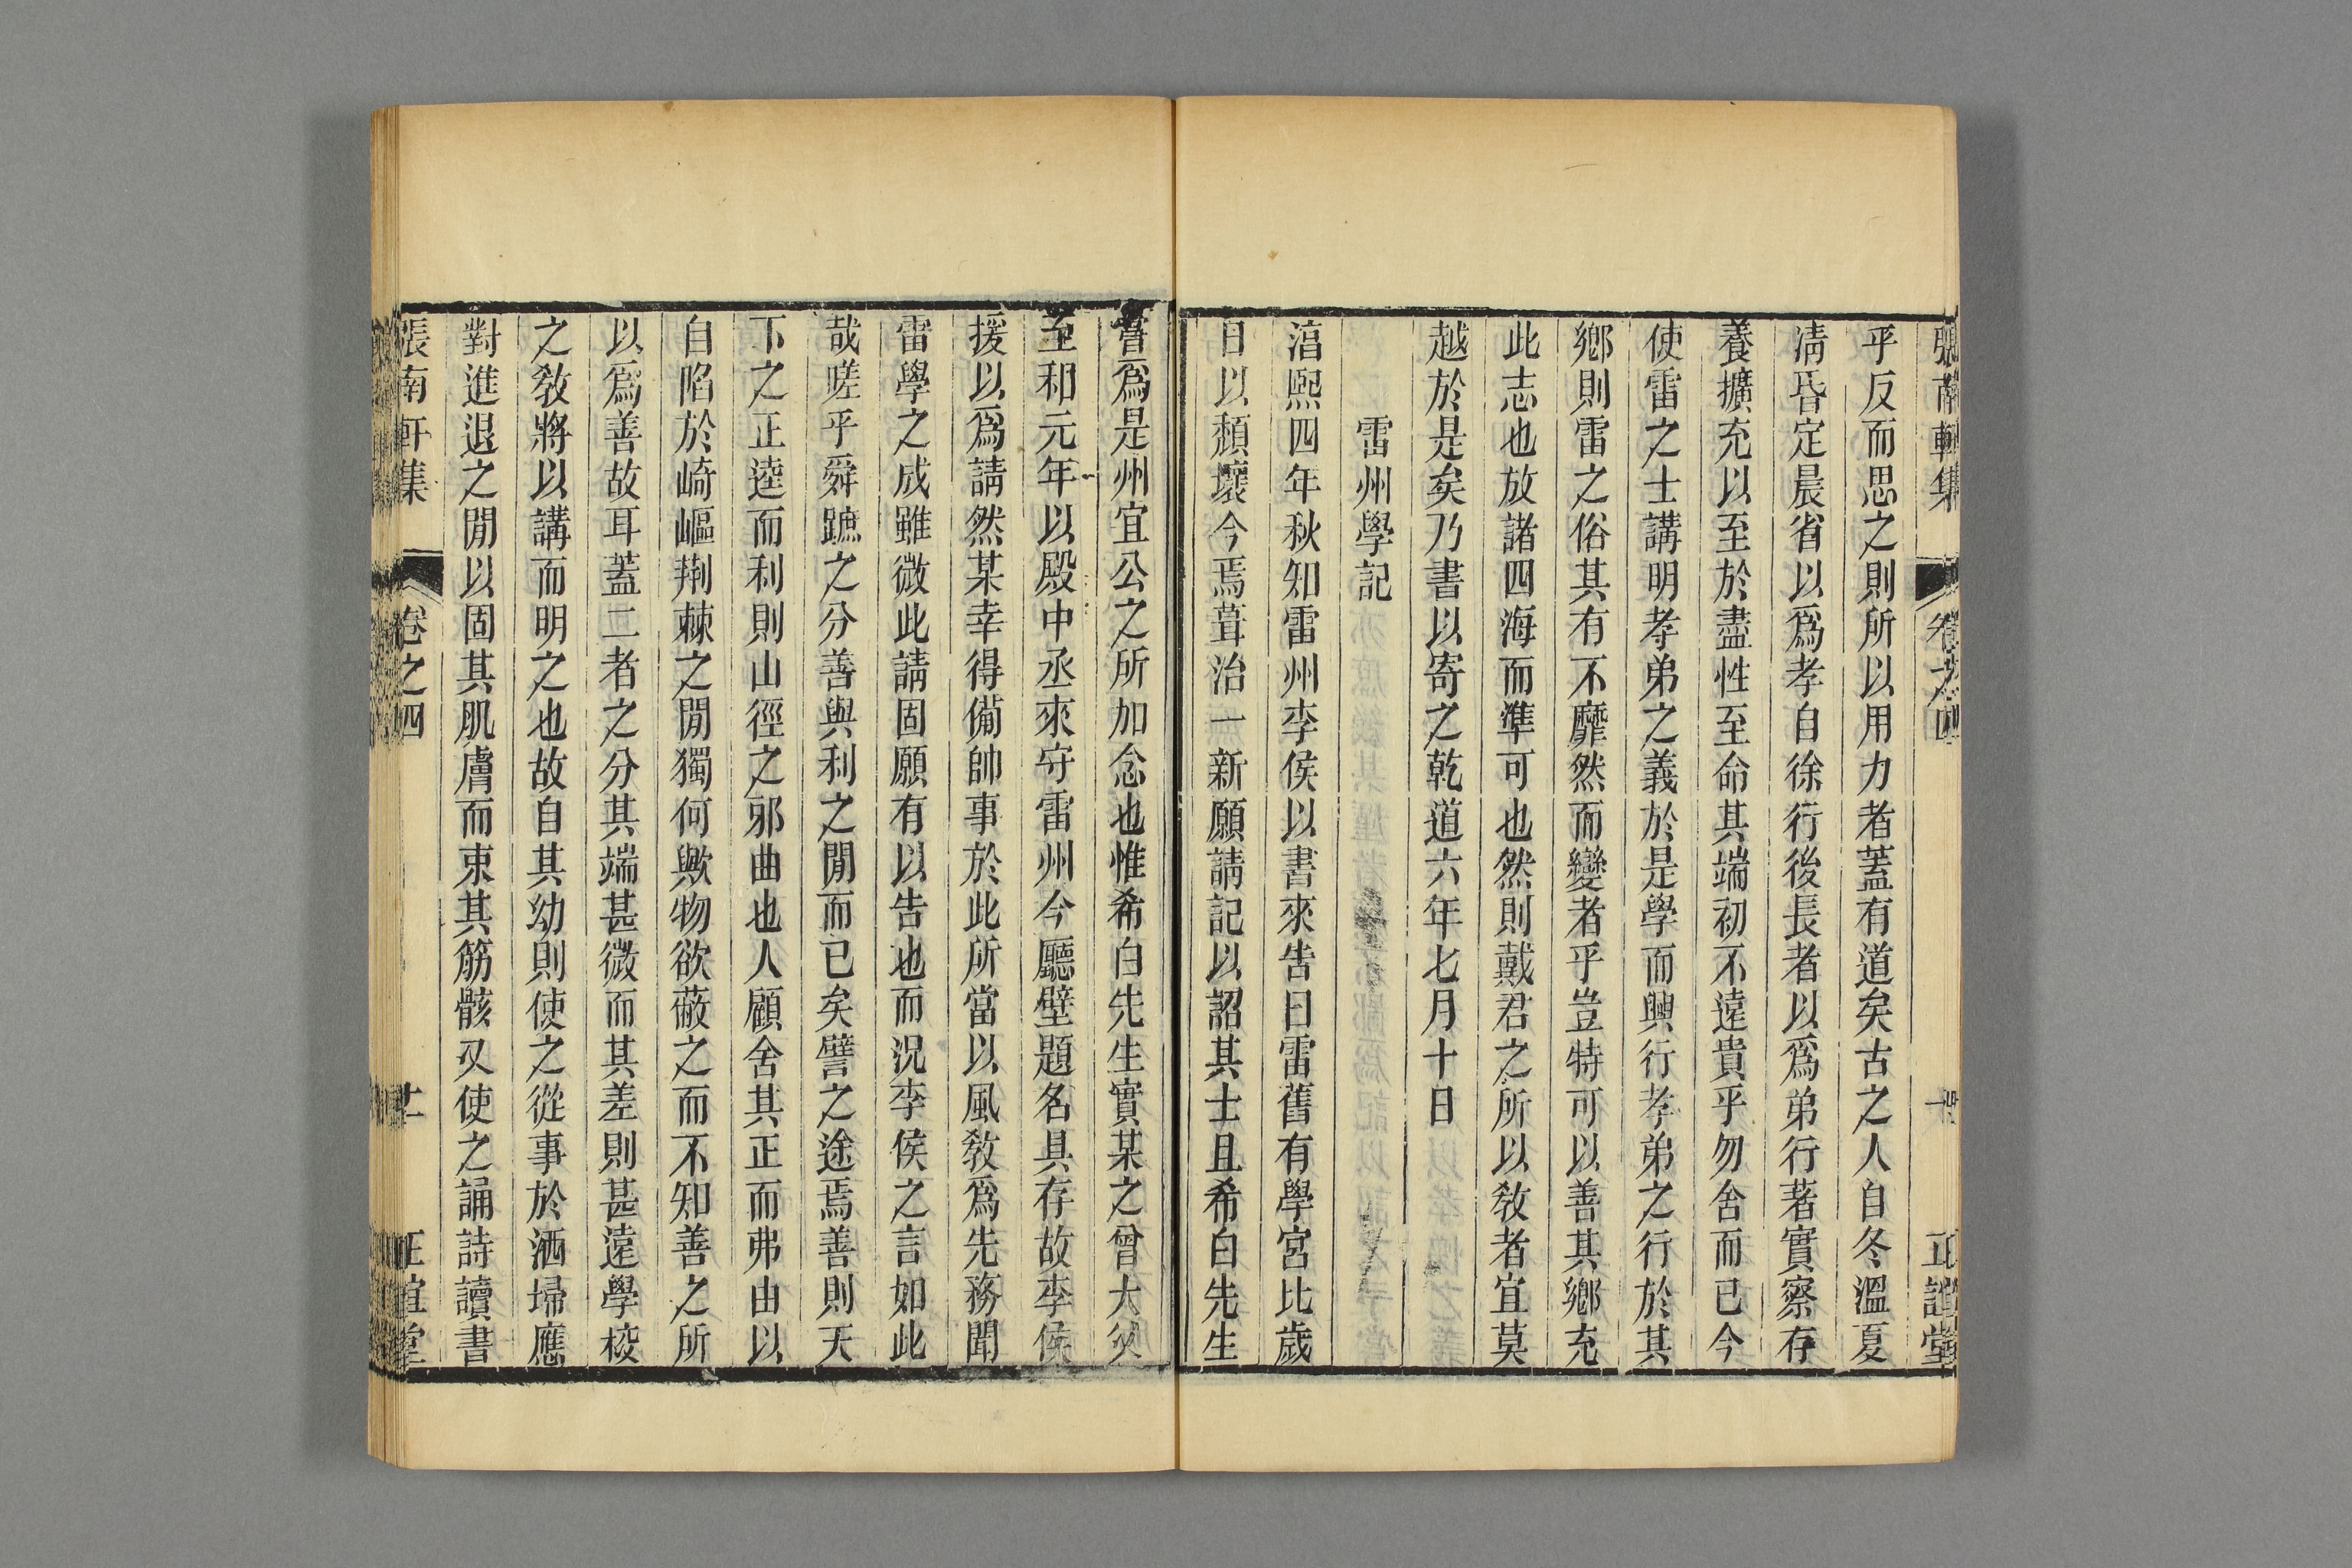 張南軒集 卷之四 十 正誼堂
乎反而思之則所以用力者蓋有道矣古之人自冬溫夏
凊昏定晨省以爲孝自徐行後長者以爲弟行著實察存
養擴充以至於盡性至命其端初不遠貴乎勿舍而已今
使雷之士講明孝弟之義於是學而興行孝弟之行於其
鄉則雷之俗其有不靡然而變者乎豈特可以善其鄉充
此志也放諸四海而準可也然則戴君之所以敎者宜莫
越於是矣乃書以寄之乾道六年七月十日
雷州學記
湻熙四年秋知雷州李侯以書來告曰雷舊有學宮比歲
日以頽壞今焉葺治一新願請記以詔其士且希白先生
嘗爲是州宜公之所加念也惟希白先生實某之曾大父
至和元年以殿中丞來守雷州今廳壁題名具存故李侯
援以爲請然某幸得備帥事於此所當以風敎爲先務聞
雷學之成雖微此請固願有以告也而況李侯之言如此
哉嗟乎舜蹠之分善與利之閒而已矣譬之途焉善則天
下之正逵而利則山徑之邪曲也人顧舍其正而弗由以
自陷於崎嶇荆棘之閒獨何歟物欲蔽之而不知善之所
以爲善故耳蓋二者之分其端甚微而其差則甚遠學校
之敎將以講而明之也故自其幼則使之從事於洒埽應
對進退之閒以固其肌膚而束其筋骸又使之誦詩讀書
張南軒集 卷之四 十一 正誼堂